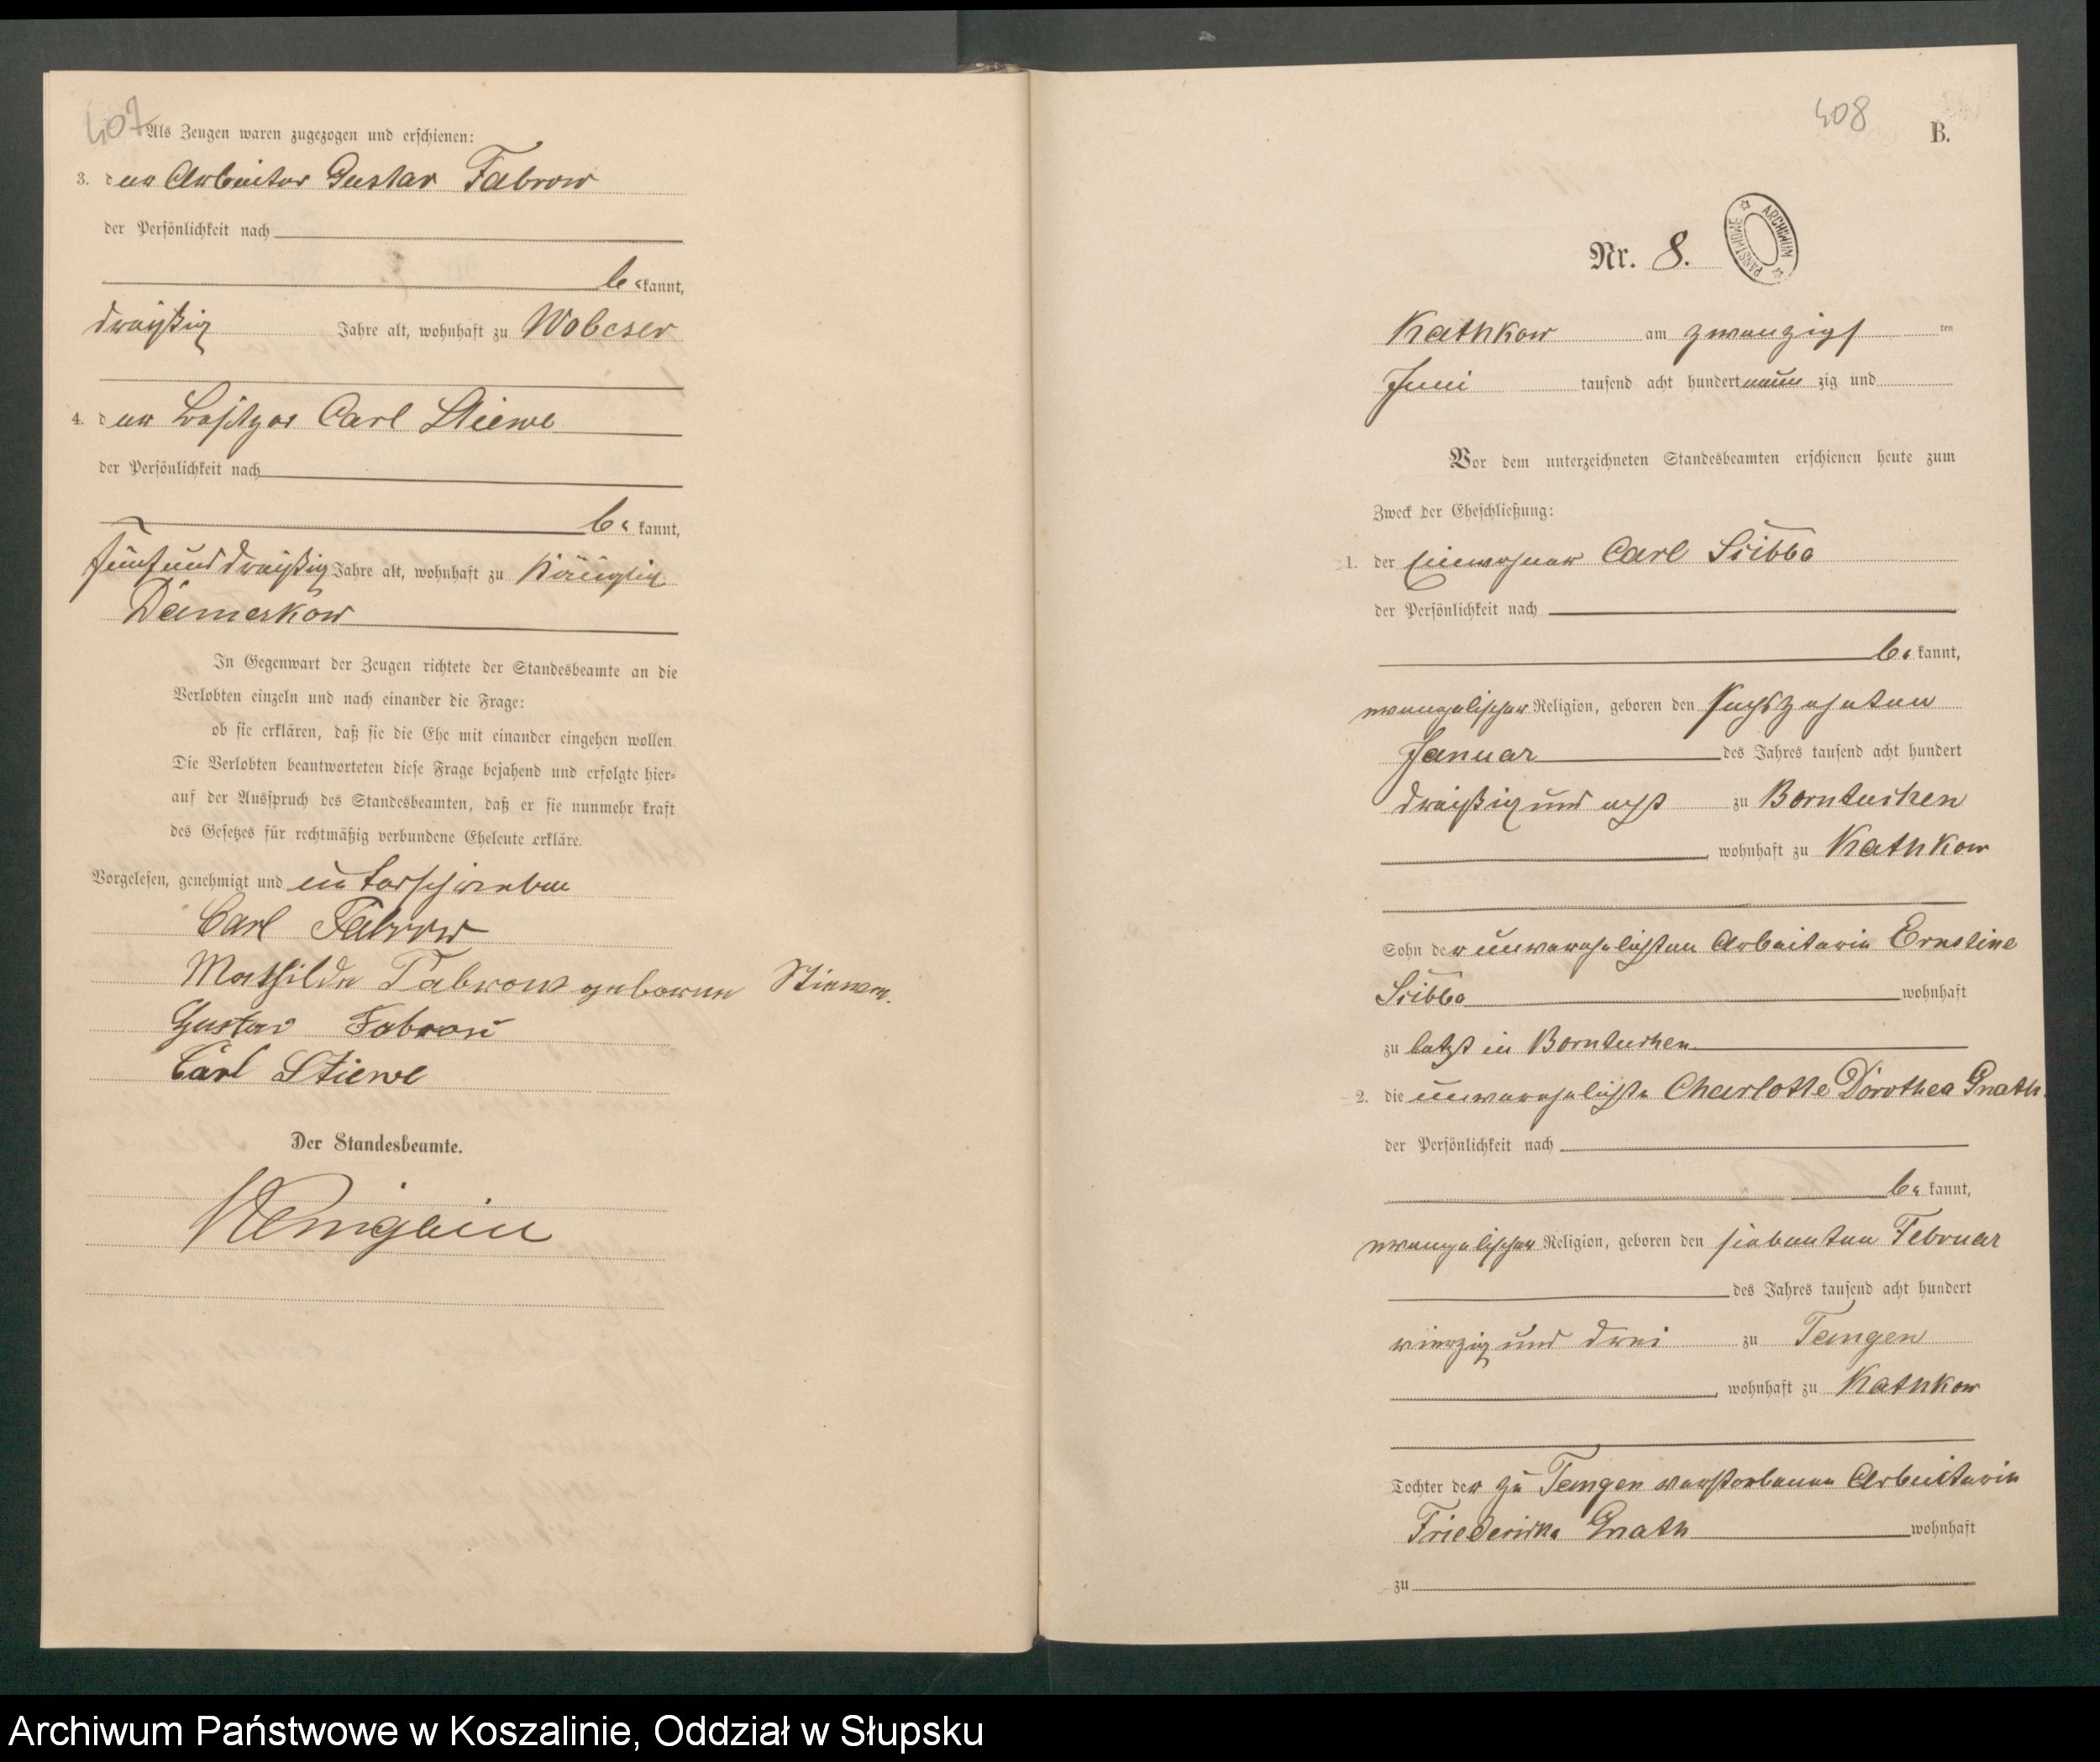 407
Als Zeugen waren zugezogen und erschienen:
3. der Arbeiter Gustav Fabrow
der Persönlichkeit nach
bekannt,
dreißig Jahre alt, wohnhaft zu Wobeser
4. der Besitzer Carl Stiewe
der Persönlichkeit nach
bekannt,
fünf und dreißig Jahre alt, wohnhaft zu Königlich
Dameskow
In Gegenwart der Zeugen richtete der Standesbeamte an die
Verlobten einzeln und nach einander die Frage:
ob sie erklären, daß sie die Ehe mit einander eingehen wollen.
Die Verlobten beantworteten diese Frage bejahend und erfolgte hier-
auf der Ausspruch des Standesbeamten, daß er sie nunmehr kraft
des Gesetzes für rechtmäßig verbundene Eheleute erkläre.
Vorgelesen, genehmigt und unterschrieben
Carl Fabrow
Mathilde Fabrow geborene Stiewe.
Gustav Fabrow
Carl Stiewe
Der Standesbeamte.
408
B.
Nr. 8.
ARCHIWUM PAŃSTWOWE
Kathkow am zwanzigsten
Juni tausend acht hundert neun zig und
Vor dem unterzeichneten Standesbeamten erschienen heute zum
Zweck der Eheschließung:
1. der Einwohner Carl Sibbo
der Persönlichkeit nach
bekannt,
evangelischer Religion, geboren den sechszehnten
Januar des Jahres tausend acht hundert
dreißig und acht zu Borntuchen
, wohnhaft zu Kathkow
Sohn der unverehelichten Arbeiterin Ernstine
Sibbo wohnhaft
zu letzt in Borntuchen
2. die unverehelichte Charlotte Dorothea Gnath
der Persönlichkeit nach
bekannt,
evangelischer Religion, geboren den siebenten Februar
des Jahres tausend acht hundert
vierzig und drei zu Tangen
, wohnhaft zu Kathkow
Tochter der zu Tangen verstorbenen Arbeiterin
Friederike Gnath wohnhaft
zu
Archiwum Państwowe w Koszalinie, Oddział w Słupsku